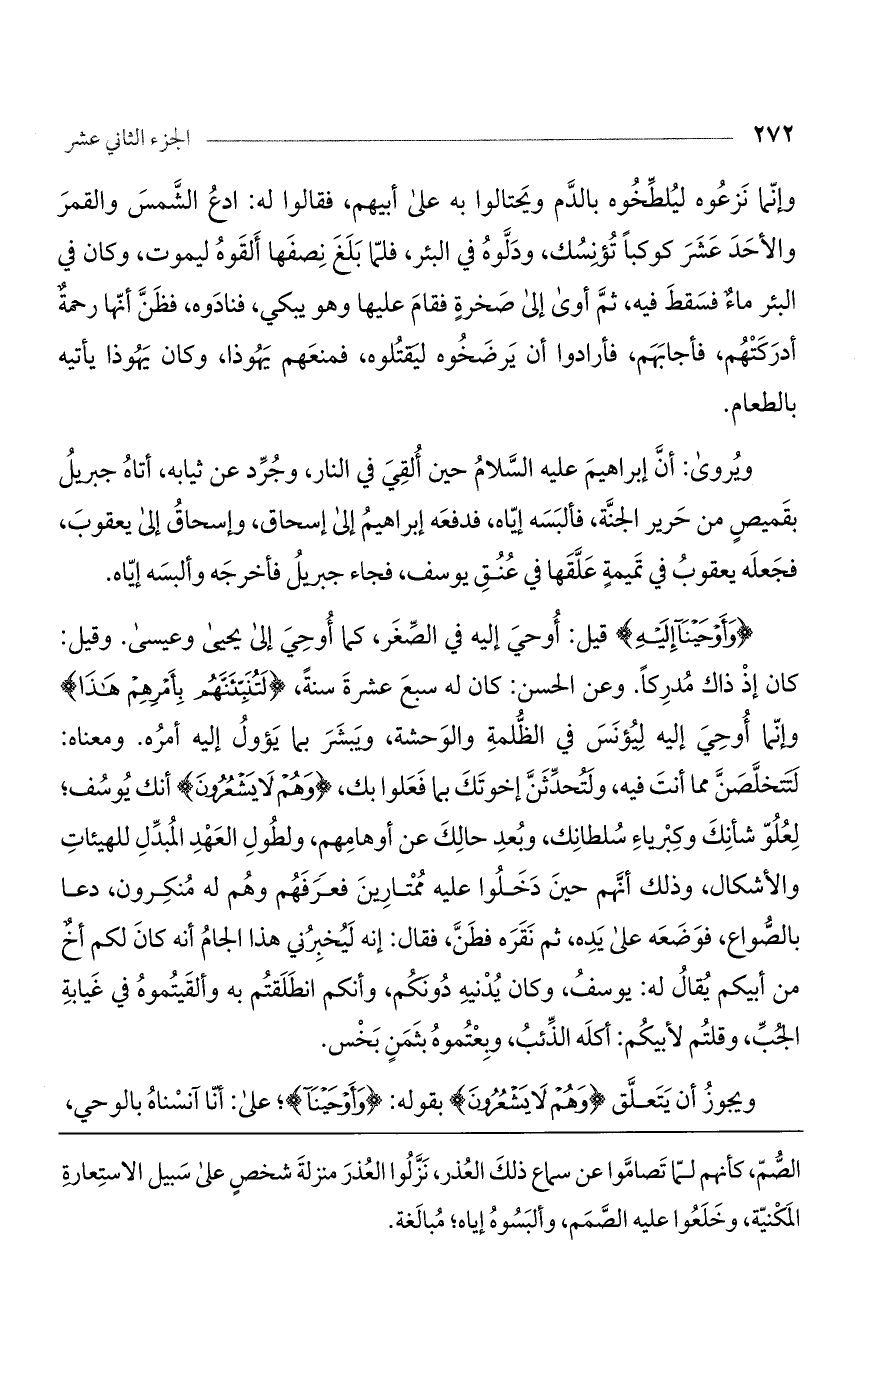 ٢٧٢ الجزء الثاني عشر
وإنّما نَزعُوه ليُلطِّخُوه بالدَّم ويَحتالوا به علىٰ أبيهم، فقالوا له: ادعُ الشَّمسَ والقمرَ
والأحَدَ عَشَرَ كوكباً تُؤنِسُك، ودَلَّوهُ في البئر، فلمّا بَلَغَ نِصفَها ألقَوهُ ليموت، وكان في
البئر ماءٌ فسَقطَ فيه، ثمَّ أوىٰ إلىٰ صَخرةٍ فقامَ عليها وهو يبكي، فنادَوه، فظَنَّ أنّها رحمةٌ
أدرَكَتْهُم، فأجابَهَم، فأرادوا أن يَرضَخُوه ليَقتُلوه، فمنعَهم يَهُوذا، وكان يَهُوذا يأتيه
بالطعام.
ويُروىٰ: أنَّ إبراهيمَ عليه السَّلامُ حين أُلقِيَ في النار، وجُرِّد عن ثيابه، أتاهُ جبريلُ
بقَميصٍ من حَرير الجنَّة، فألبَسَه إيّاه، فدفعَه إبراهيمُ إلىٰ إسحاق، وإسحاقُ إلىٰ يعقوبَ،
فجَعلَه يعقوبُ في تَميمةٍ عَلَّقَها في عُنُـقِ يوسف، فجاء جبريلُ فأخرجَه وألبسَه إيّاه.
﴿وَأَوْحَيْنَآ إِلَيْهِ﴾ قيل: أُوحيَ إليه في الصِّغَر، كما أُوحِيَ إلىٰ يحيىٰ وعيسىٰ. وقيل:
كان إذْ ذاك مُدرِكاً. وعن الحسن: كان له سبعَ عشرةَ سنةً، ﴿لَتُنَبِّئَنَّهُم بِأَمْرِهِمْ هَـٰذَا﴾
وإنّما أُوحِيَ إليه لِيُؤنَسَ في الظُّلمةِ والوَحشة، ويَبشَرَ بما يَؤولُ إليه أمرُه. ومعناه:
لَتَتخلَّصَنَّ مما أنتَ فيه، ولَتُحدِّثَنَّ إخوتَكَ بما فَعَلوا بك، ﴿وَهُمْ لَا يَشْعُرُونَ﴾ أنك يُوسُف؛
لِعُلُوّ شأنِكَ وكِبْرياءِ سُلطانِك، وبُعدِ حالِكَ عن أوهامِهم، ولطُولِ العَهْدِ المُبدِّلِ للهيئاتِ
والأشكال، وذلك أنَّهم حينَ دَخَـلُوا عليه مُمْتـارِينَ فعـرَفَهُم وهُم له مُنكِـرون، دعـا
بالصُّواع، فوَضَعَه علىٰ يَدِه، ثم نَقَرَه فطَنَّ، فقال: إنه لَيُخبِرُني هذا الجامُ أنه كانَ لكم أخٌ
من أبيكم يُقالُ له: يوسفُ، وكان يُدْنيهِ دُونَكُم، وأنكم انطَلَقتُم به وألقَيتُموهُ في غَيابةِ
الجُبِّ، وقلتُم لأبيكُم: أكلَه الذِّئبُ، وبِعْتُموهُ بثَمَنٍ بَخْس.
ويجوزُ أن يَتَعـلَّق ﴿وَهُمْ لَا يَشْعُرُونَ﴾ بقوله: ﴿وَأَوْحَيْنَآ﴾؛ علىٰ: أنّا آنسْناهُ بالوحي،
الصُّمّ، كأنهم لـمّا تَصامَّوا عن سماع ذلكَ العُذر، نَزَّلُوا العُذرَ منزلةَ شخصٍ علىٰ سَبيل الاستِعارةِ
المَكْنيّة، وخَلَعُوا عليه الصَّمَم، وألبَسُوهُ إياه؛ مُبالَغة.